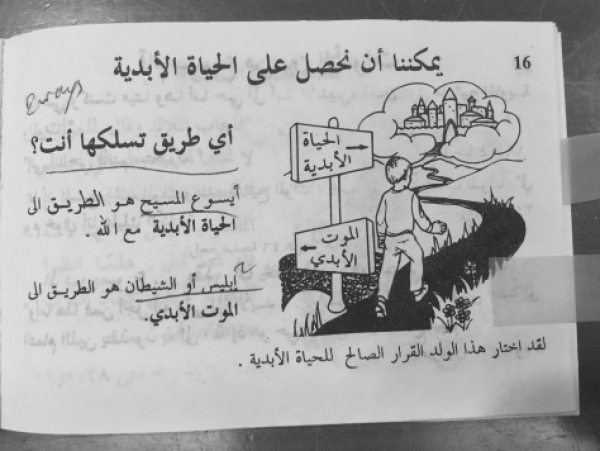 16
يمكننا أن نحصل على الحياة الأبدية
2 ways
أي طريق تسلكها أنت؟
أيسوع المسيح هو الطريق الى
الحياة الأبدية مع الله.
أبليس أو الشيطان هو الطريق الى
الموت الأبدي.
الحياة
الأبدية
الموت
الأبدي
لقد اختار هذا الولد القرار الصالح للحياة الأبدية.